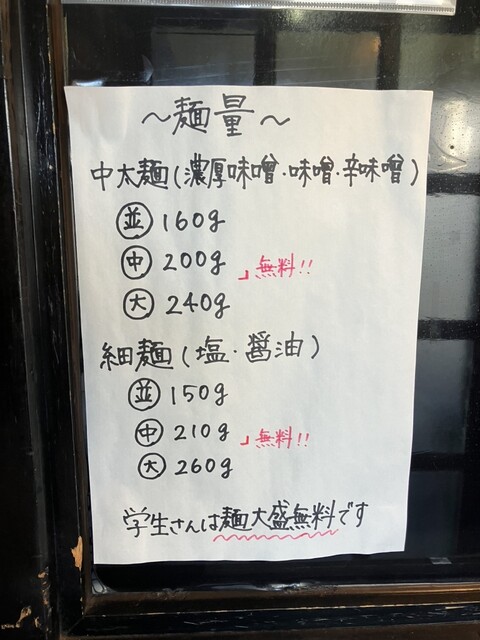 ～麺量～
中太麺(濃厚味噌・味噌・辛味噌)
並 160g
中 200g 」無料!!
大 240g
細麺(塩・醤油)
並 150g
中 210g 」無料!!
大 260g
学生さんは麺大盛無料です